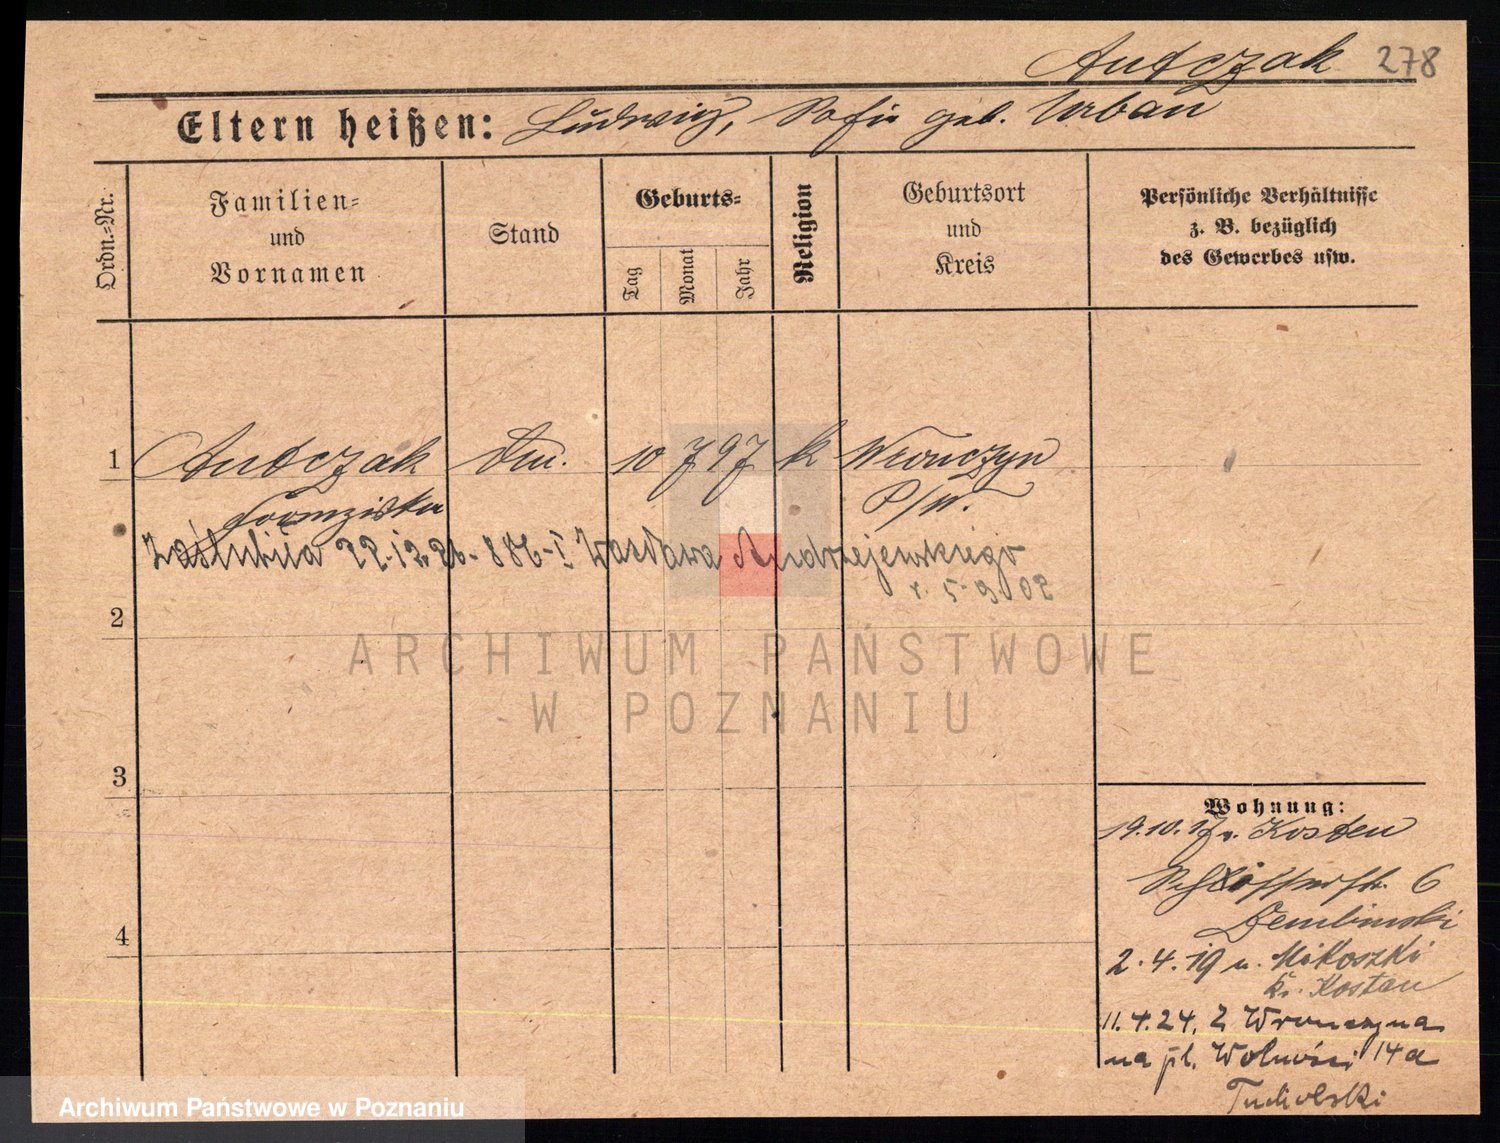 Antczak 278
Eltern heißen: Ludwig, Sofie geb. Urban
Ordn.=Nr.
Familien=
und
Vornamen
Stand
Geburts=
Tag
Monat
Jahr
Religion
Geburtsort
und
Kreis
Persönliche Verhältnisse
z. B. bezüglich
des Gewerbes usw.
1 Antczak 10 7 97 k Wronczyn
Franziska P/W.
Zaślubiła 22.12.26 - 886-I Wacława Andrzejewskiego
r. 5-9 02
2
ARCHIWUM PAŃSTWOWE
W POZNANIU
3
4
Wohnung:
19.10.17 v. Kosten
Schlosserstr. 6
Dembinski
2.4.19 n. Mikoszki
K. Kosten
11.4.24. Z Wronczyna
na pl. Wolności 14a
Tucholski
Archiwum Państwowe w Poznaniu